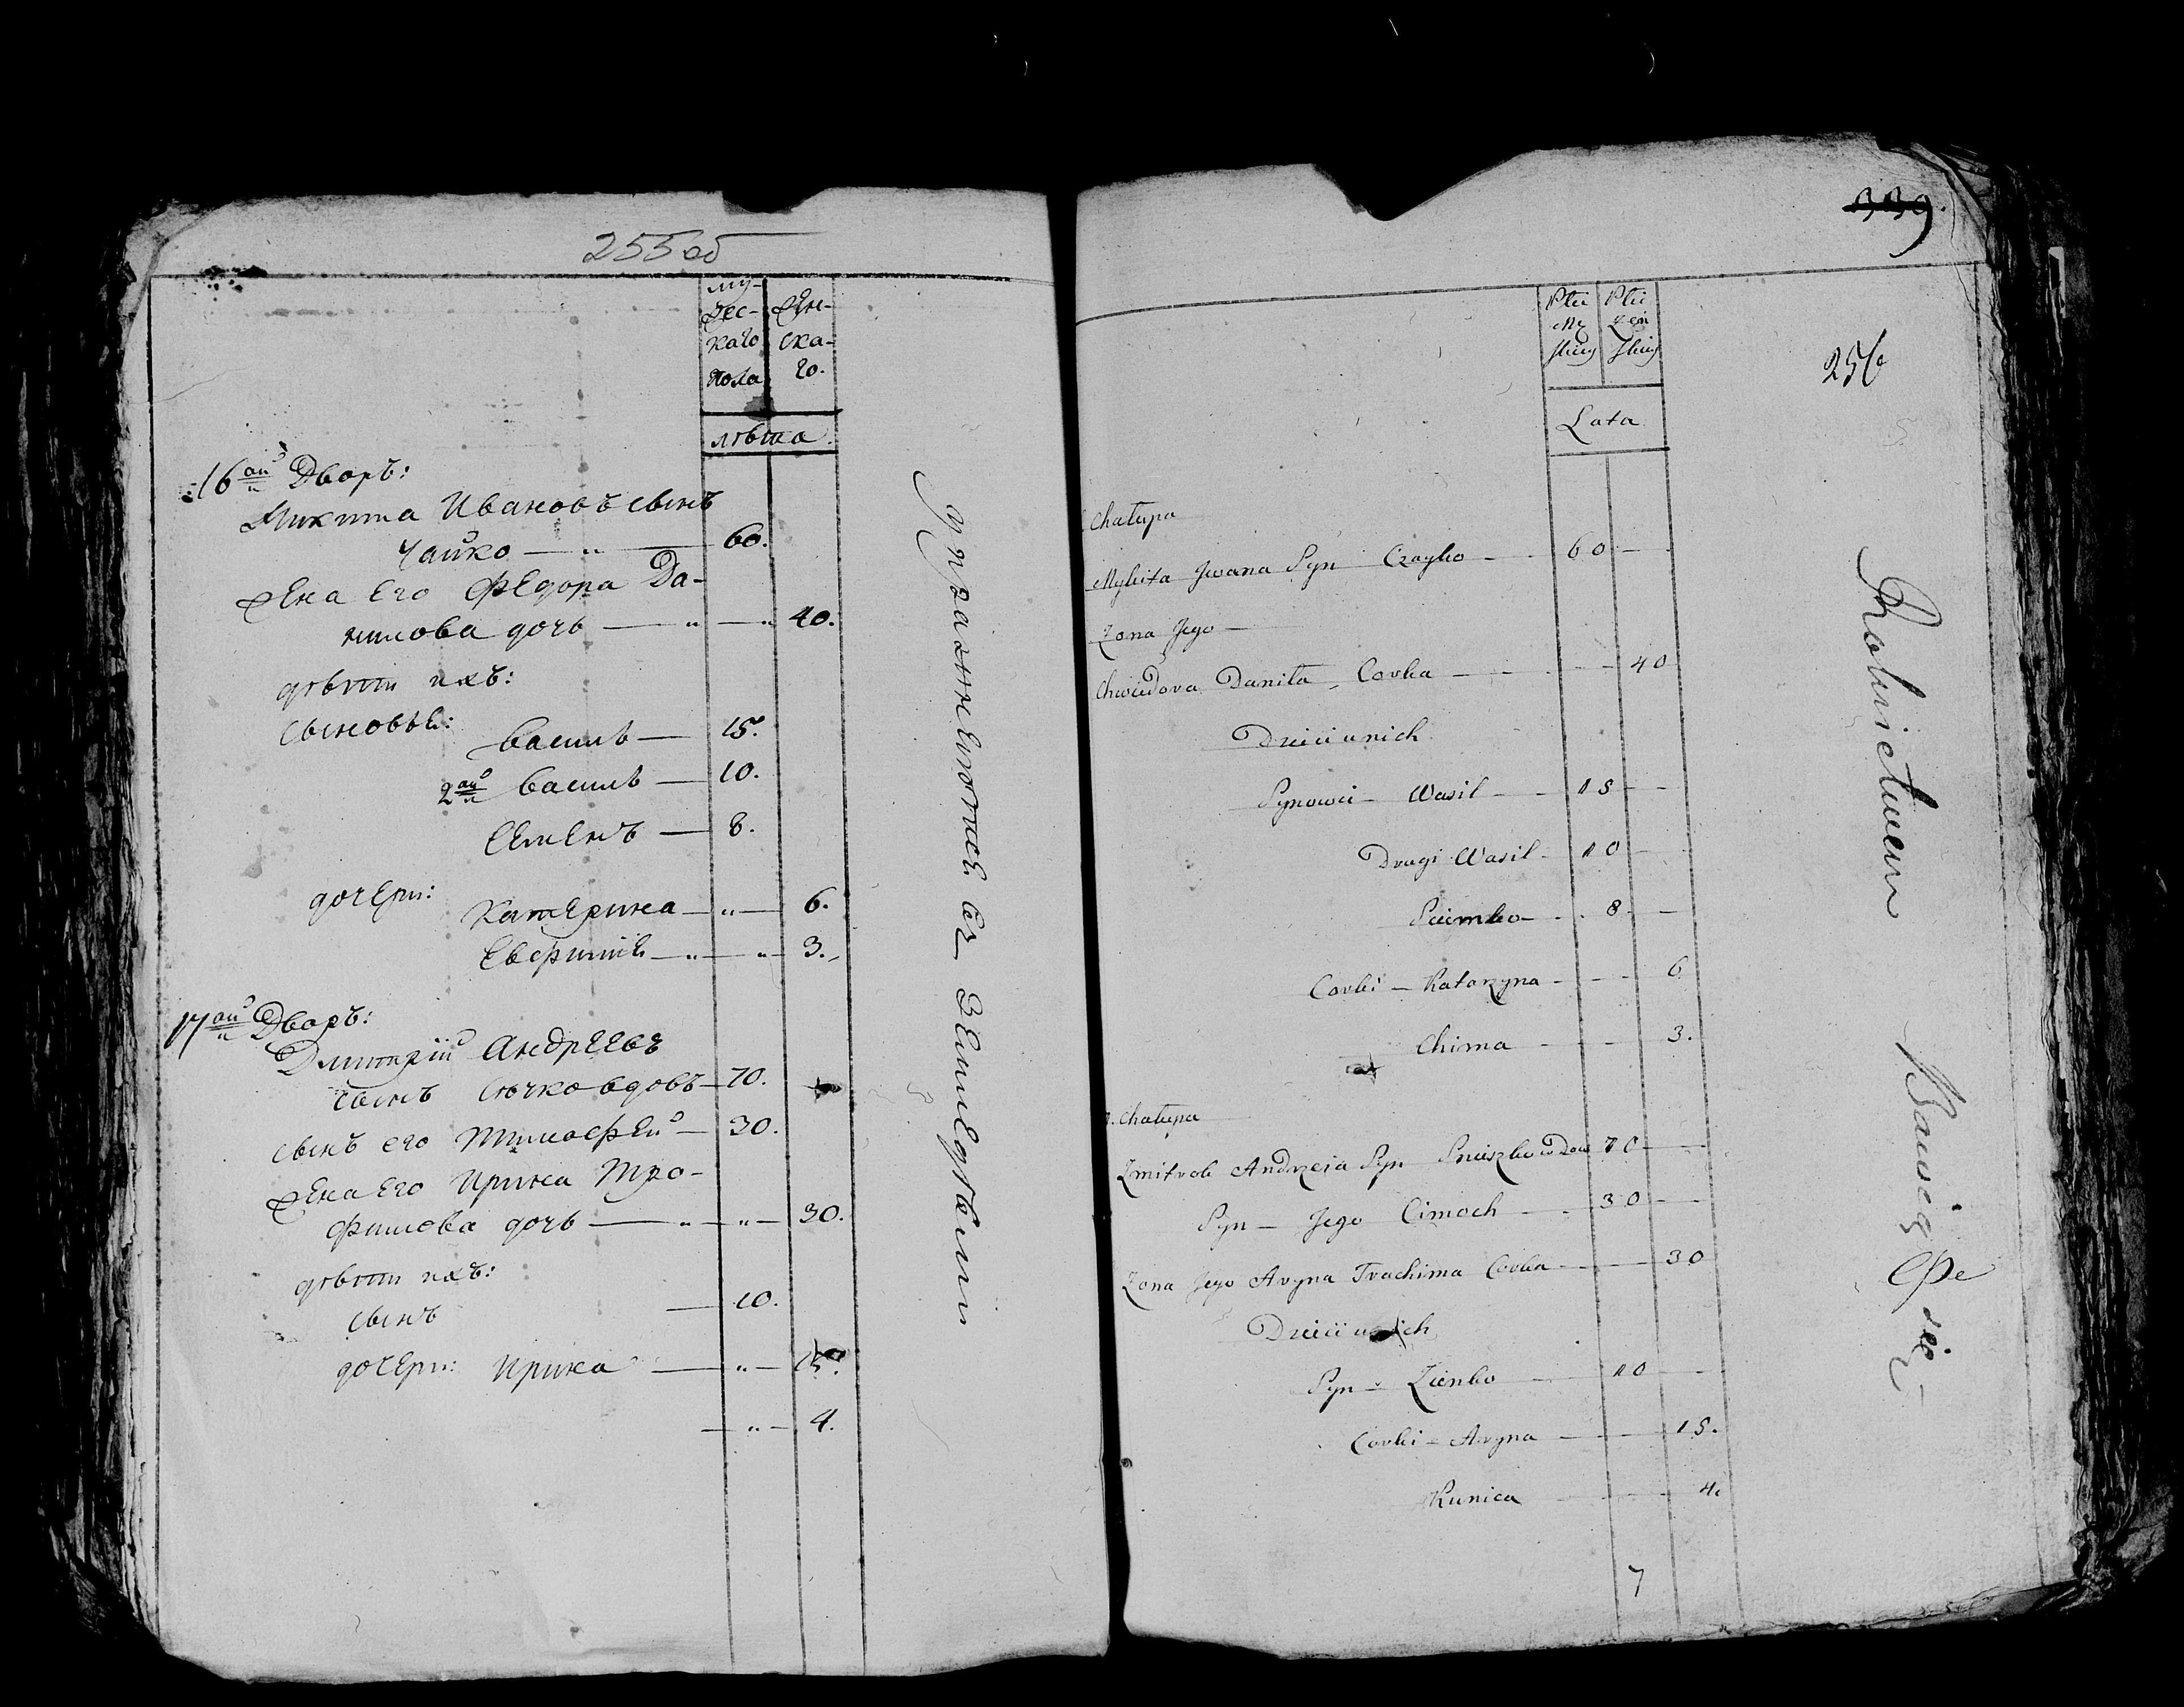 255 об
му-
жес-
каго
пола
жен-
ска-
го.
лѣта
16ай Дворъ:
Микита Ивановъ сынъ
Чайко — " — 60.
жена его Федора Да-
нилова дочь — " — " 40.
дѣти ихъ:
сыновья: Василь — 15.
2ай Василь — 10.
Семенъ — 8.
дочери: Катерина — " — 6.
Евфимія — " — " — 3.
17ай Дворъ:
Дмитрій Андреевъ
сынъ Снѣчко вдовъ — 70.
сынъ его Тимофей — 30.
жена его Ирина Тро-
фимова дочь — " — " — 30.
дѣти ихъ:
сынъ — 10.
дочери: Ирина — " — 15.
— " — 4.
упражняются въ Земледѣліи
339.
256
Płci
Mę
skiey
Płci
żeń
skiey
Lata
Chałupa
Mykita Jwana Syn Czayko — 60 —
Żona Jego —
Chwiedora Daniła Corka — — 40
Dzieci u nich
Synowie — Wasil — 15 —
Drugi Wasil — 10 —
Siemko — 8 —
Corki — Katarzyna — — 6
Chima — — 3.
Chałupa
Zmitrok Andrzeia Syn Snieszko wdow 70 —
Syn — Jego Cimoch — 30 —
Żona Jego Aryna Trachima Corka — — 30
Dzieci u nich
Syn — Zienko — 10 —
Corki — Aryna — — 15.
Kunica — — 4.
7
Rolnictwem
Bawią
Się